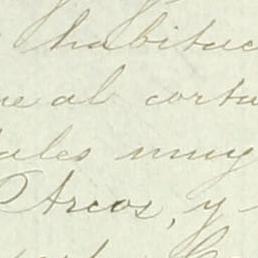 habitua
al corta
ales muy
Arcos, y